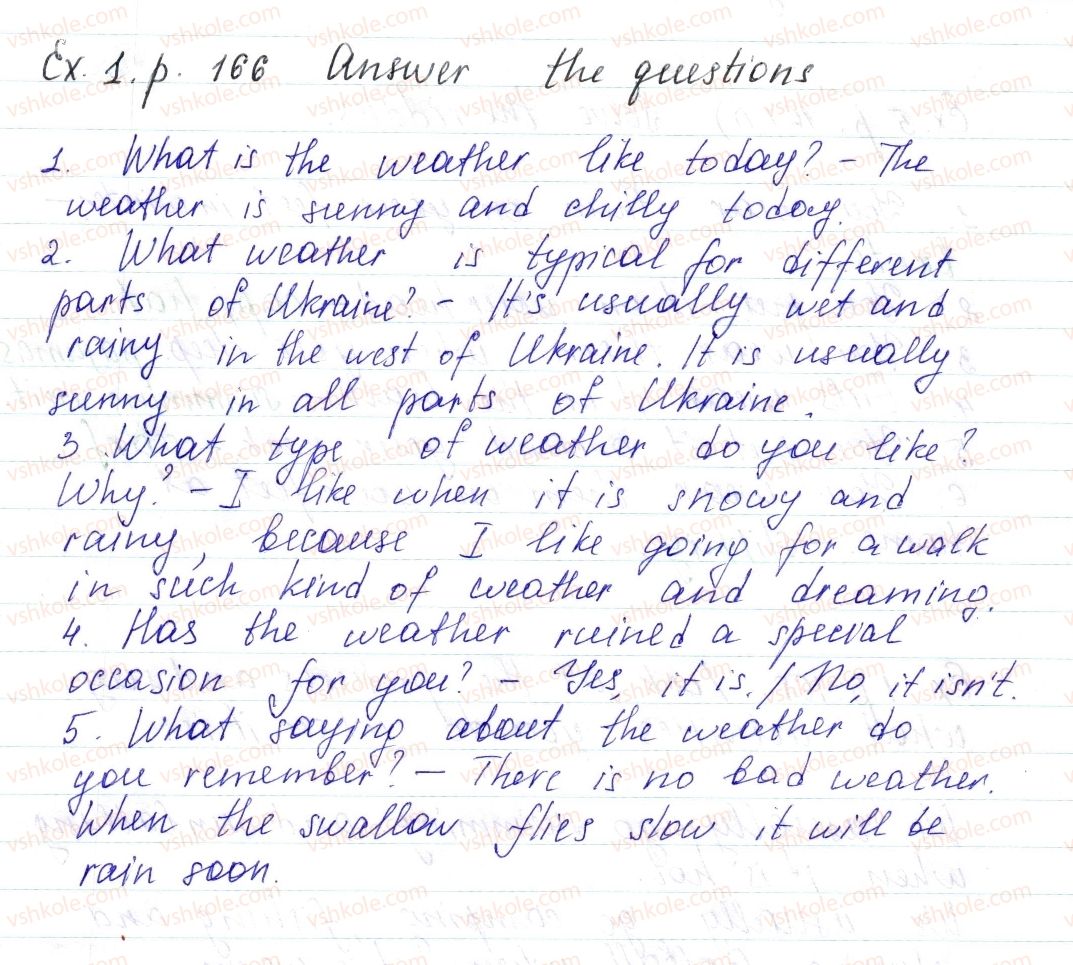 Ex. 1. p. 166 Answer the questions
1. What is the weather like today? - The
weather is sunny and chilly today.
2. What weather is typical for different
parts of Ukraine? - It's usually wet and
rainy in the west of Ukraine. It is usually
sunny in all parts of Ukraine.
3. What type of weather do you like?
Why? - I like when it is snowy and
rainy, because I like going for a walk
in such kind of weather and dreaming.
4. Has the weather ruined a special
occasion for you? - Yes, it is. / No, it isn't.
5. What saying about the weather do
you remember? - There is no bad weather.
When the swallow flies slow it will be
rain soon.
vshkole.com